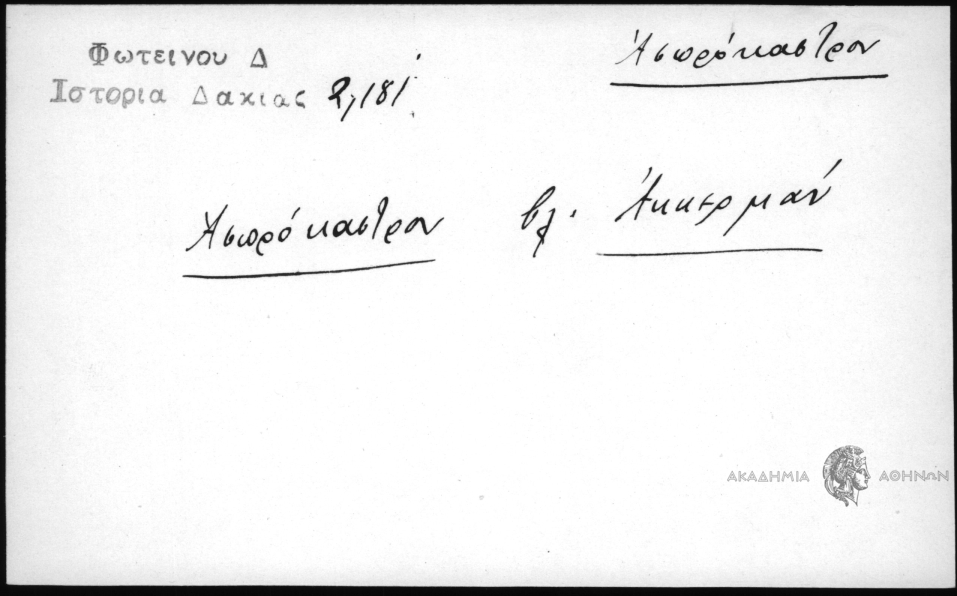 Φωτεινου Δ
Ιστορια Δακιας 2,181
Ἀσπρόκαστρον
Ἀσπρόκαστρον βλ. Ἀκκερμάν
ΑΚΑΔΗΜΙΑ ΑΘΗΝΩΝ